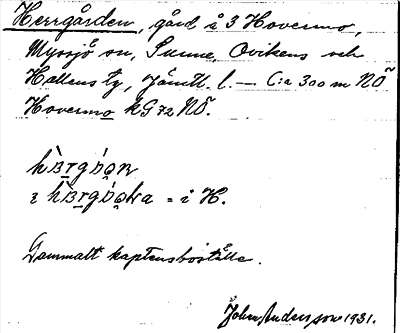 Herrgården, gård å 3 Hovermo,
Myssjö sn, Sunne, Ovikens och
Hallens tg, Jämtl. l. — C:a 300 m NÖ
Hovermo kG 72 NÖ.
= i H.
Gammalt kaptensboställe.
John Andersson 1931.